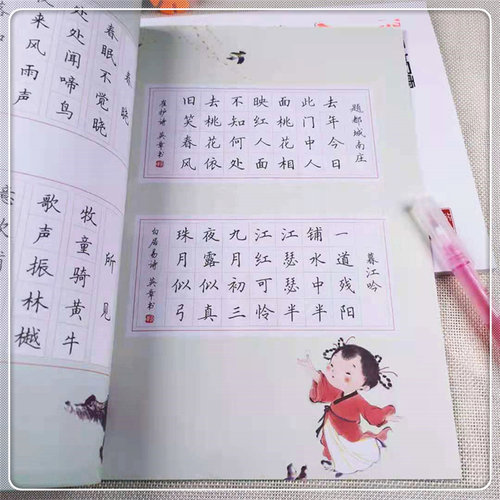 题都城南庄
去年今日
此门中人
面桃花相
映红人面
不知何处
去桃花依
旧笑春风
崔护诗 英章书
暮江吟
一道残阳
铺水中半
江瑟瑟半
江红可怜
九月初三
夜露似真
珠月似弓
白居易诗 英章书
晓
春眠不觉晓
处处闻啼鸟
来风雨声
所见
牧童骑黄牛
歌声振林樾
意欲